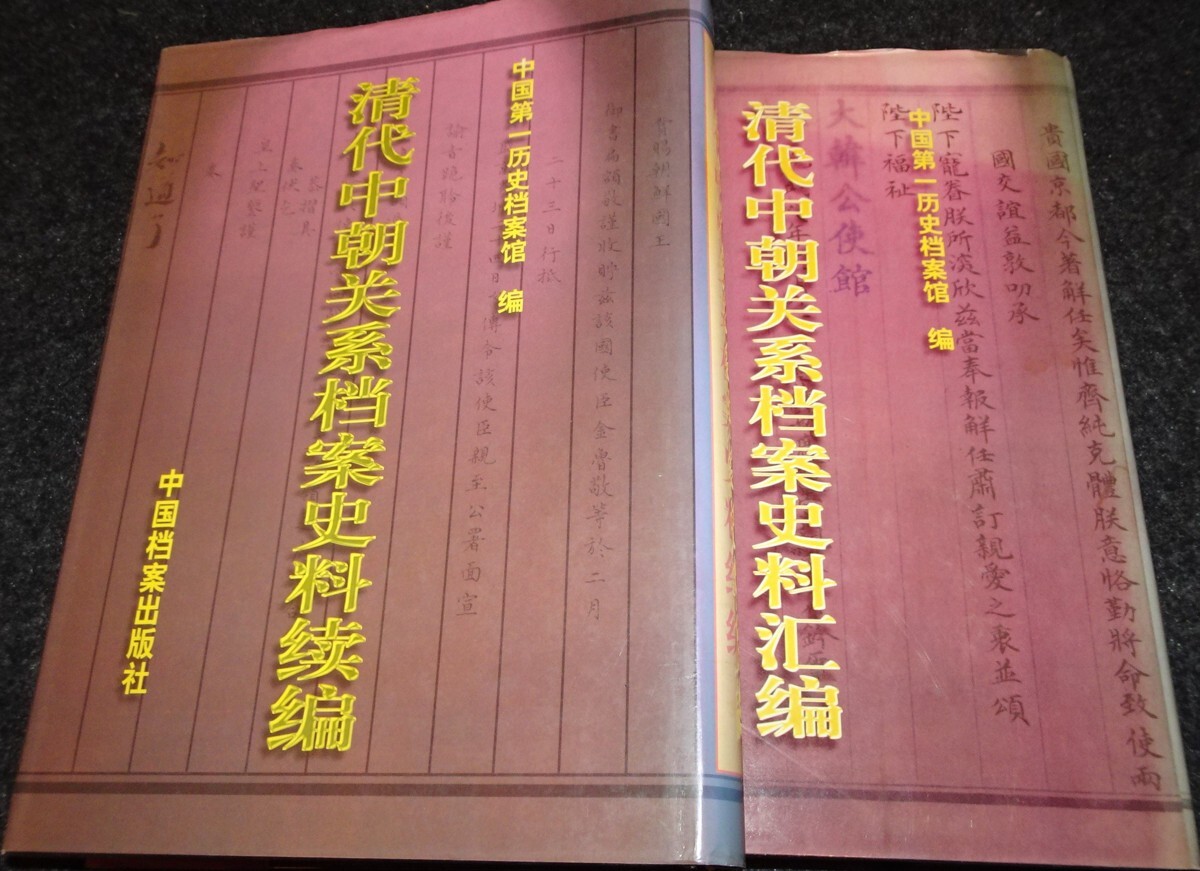 清代中朝关系档案史料汇编
中国第一历史档案馆 编
貴國京都今著解任矣惟齊純克體朕意恪勤將命致使兩
國交誼益敦叨承
陛下寵眷朕所深欣茲當奉報解任肅訂親愛之衷並頌
陛下福祉
大韓公使館
清代中朝关系档案史料续编
中国第一历史档案馆 编
中国档案出版社
賞賜朝鮮國王
御書扁額敬謹收貯茲該國使臣金魯敬等於二月
二十三日行抵
傳令該使臣親至公署面宣
諭旨跪聆後謹
知道了